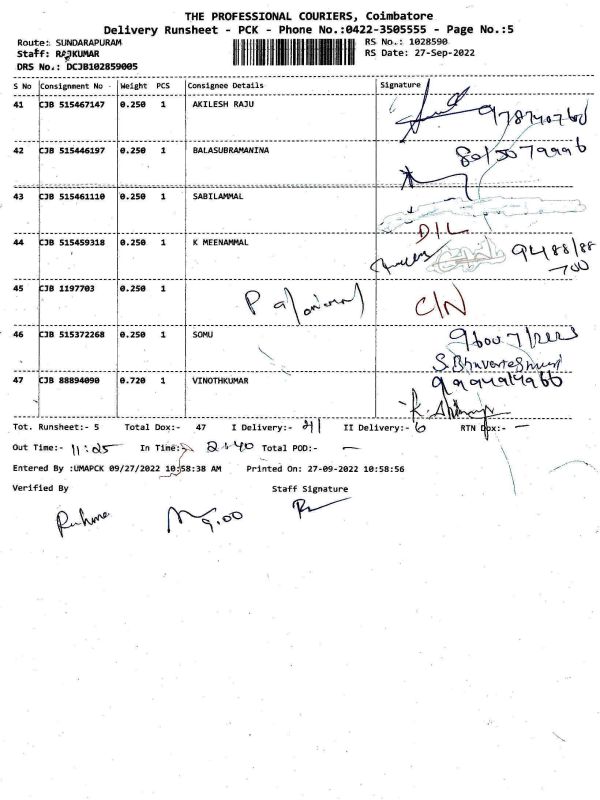 THE PROFESSIONAL COURIERS, Coimbatore
Delivery Runsheet - PCK - Phone No.:0422-3505555 - Page No.:5
Route: SUNDARAPURAM RS No.: 1028590
Staff: RAJKUMAR RS Date: 27-Sep-2022
DRS No.: DCJB102859005
S No Consignment No Weight PCS Consignee Details Signature
41 CJB 515467147 0.250 1 AKILESH RAJU
42 CJB 515446197 0.250 1 BALASUBRAMANINA
43 CJB 515461110 0.250 1 SABILAMMAL
D/L
44 CJB 515459318 0.250 1 K MEENAMMAL 9488/88
700
45 CJB 1197703 0.250 1 C/N
46 CJB 515372268 0.250 1 SOMU
47 CJB 88894090 0.720 1 VINOTHKUMAR
Tot. Runsheet:- 5 Total Dox:- 47 I Delivery:- 41 II Delivery:- 6 RTN Dox:- —
Out Time:- 11:25 In Time:- 2:40 Total POD:- —
Entered By :UMAPCK 09/27/2022 10:58:38 AM Printed On: 27-09-2022 10:58:56
Verified By Staff Signature
9.00